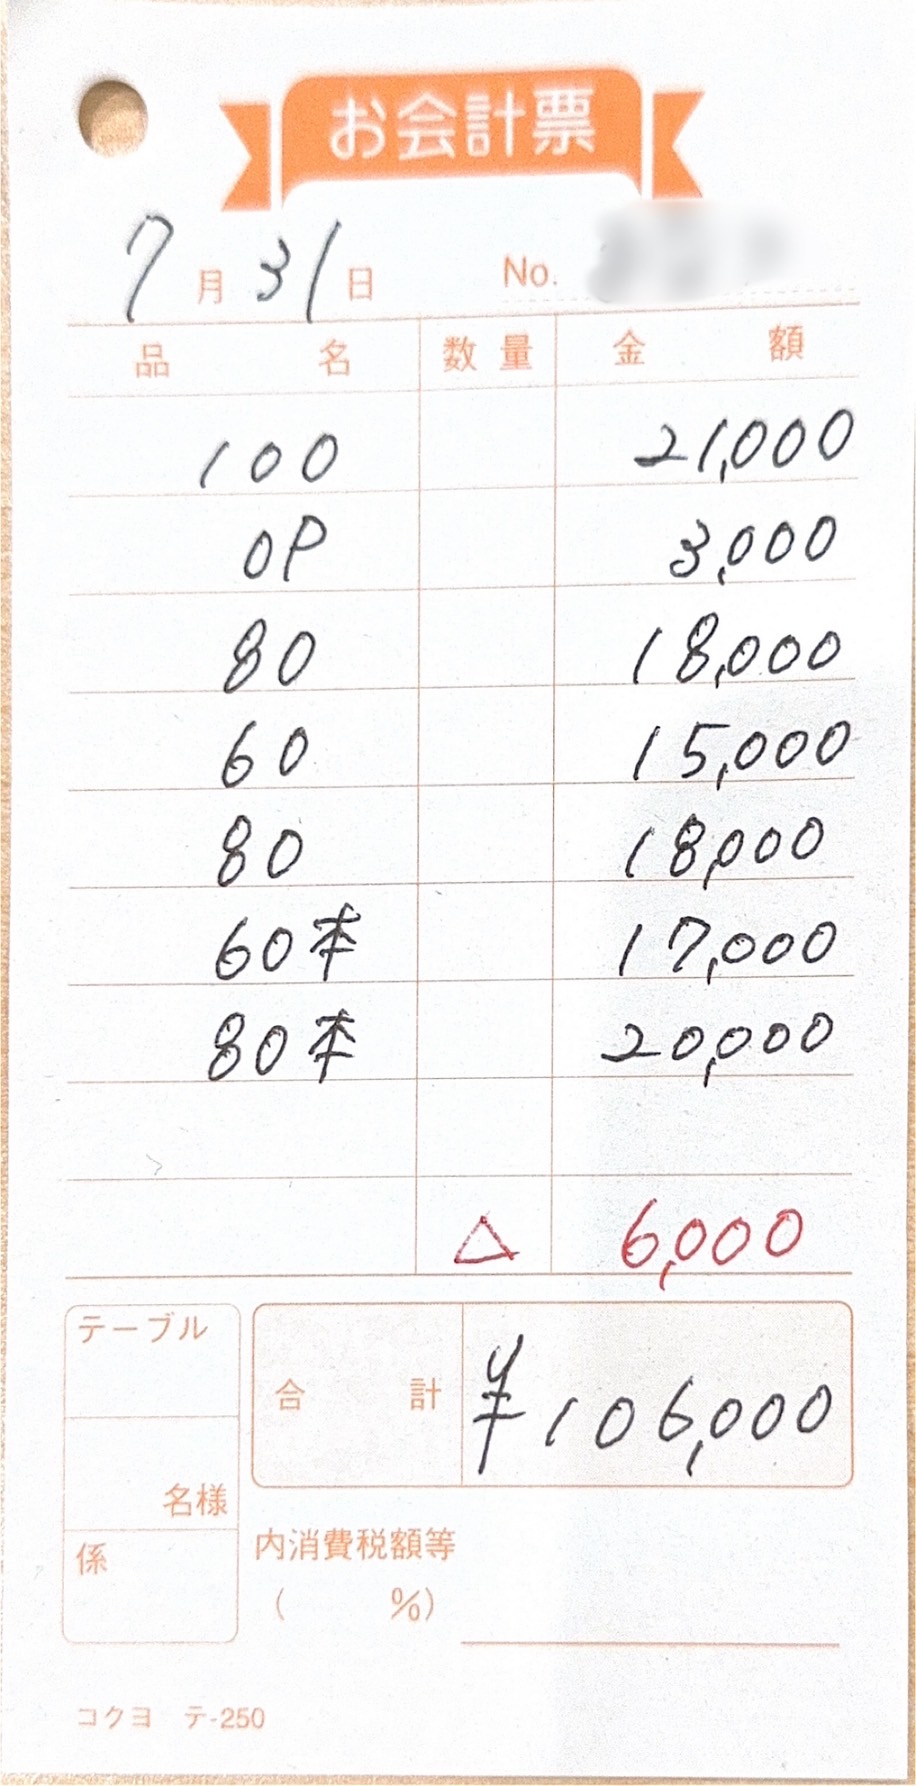 お会計票
7月31日 No.
品名 数量 金額
100 21,000
OP 3,000
80 18,000
60 15,000
80 18,000
60本 17,000
80本 20,000
△ 6,000
テーブル
合計 ¥106,000
名様
係
内消費税額等
( %)
コクヨ テ-250